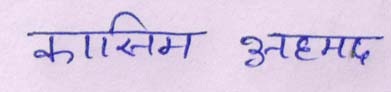 कासिम अहमद